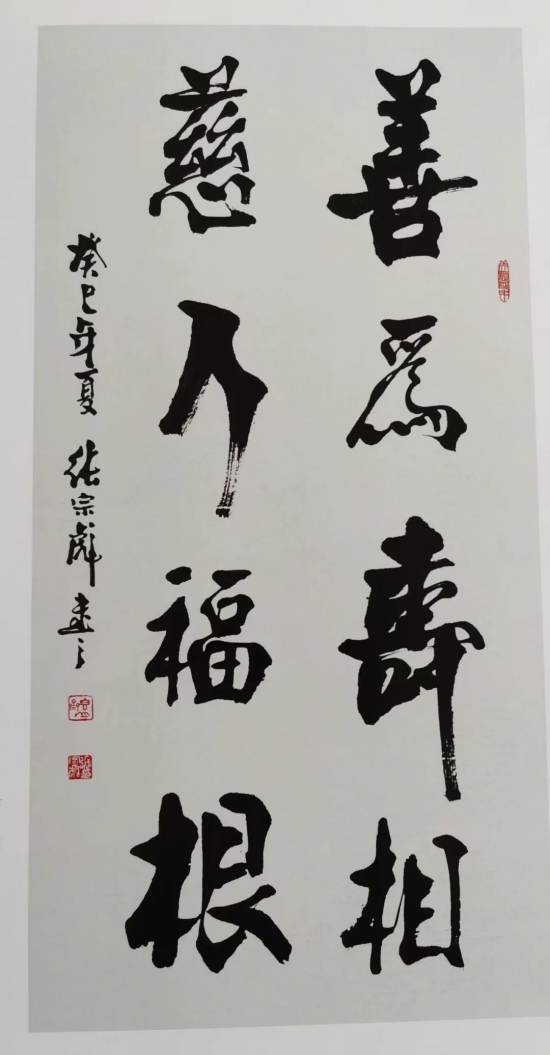 善爲壽相
慈人福根
癸巳年夏 張宗彪書之